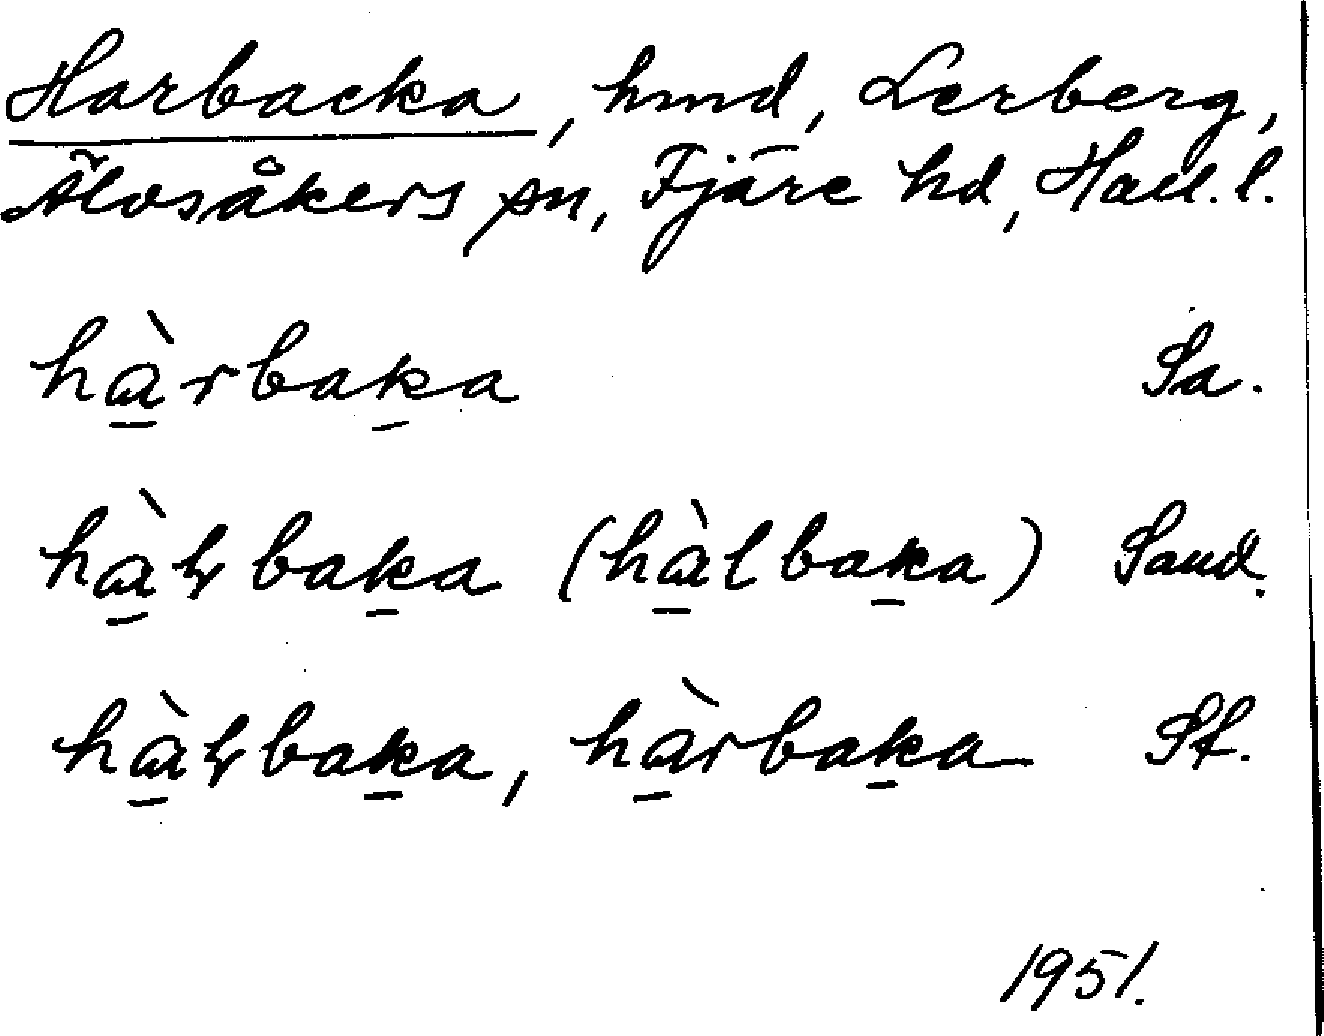 Harbacka, hmd, Lerberg,
Älvsåkers sn, Fjäre hd, Hall. l.
hàrbaka Sa.
hàꜧbaka (hàlbaka) Sand.
hàꜧbaka, hàrbaka Sf.
1951.